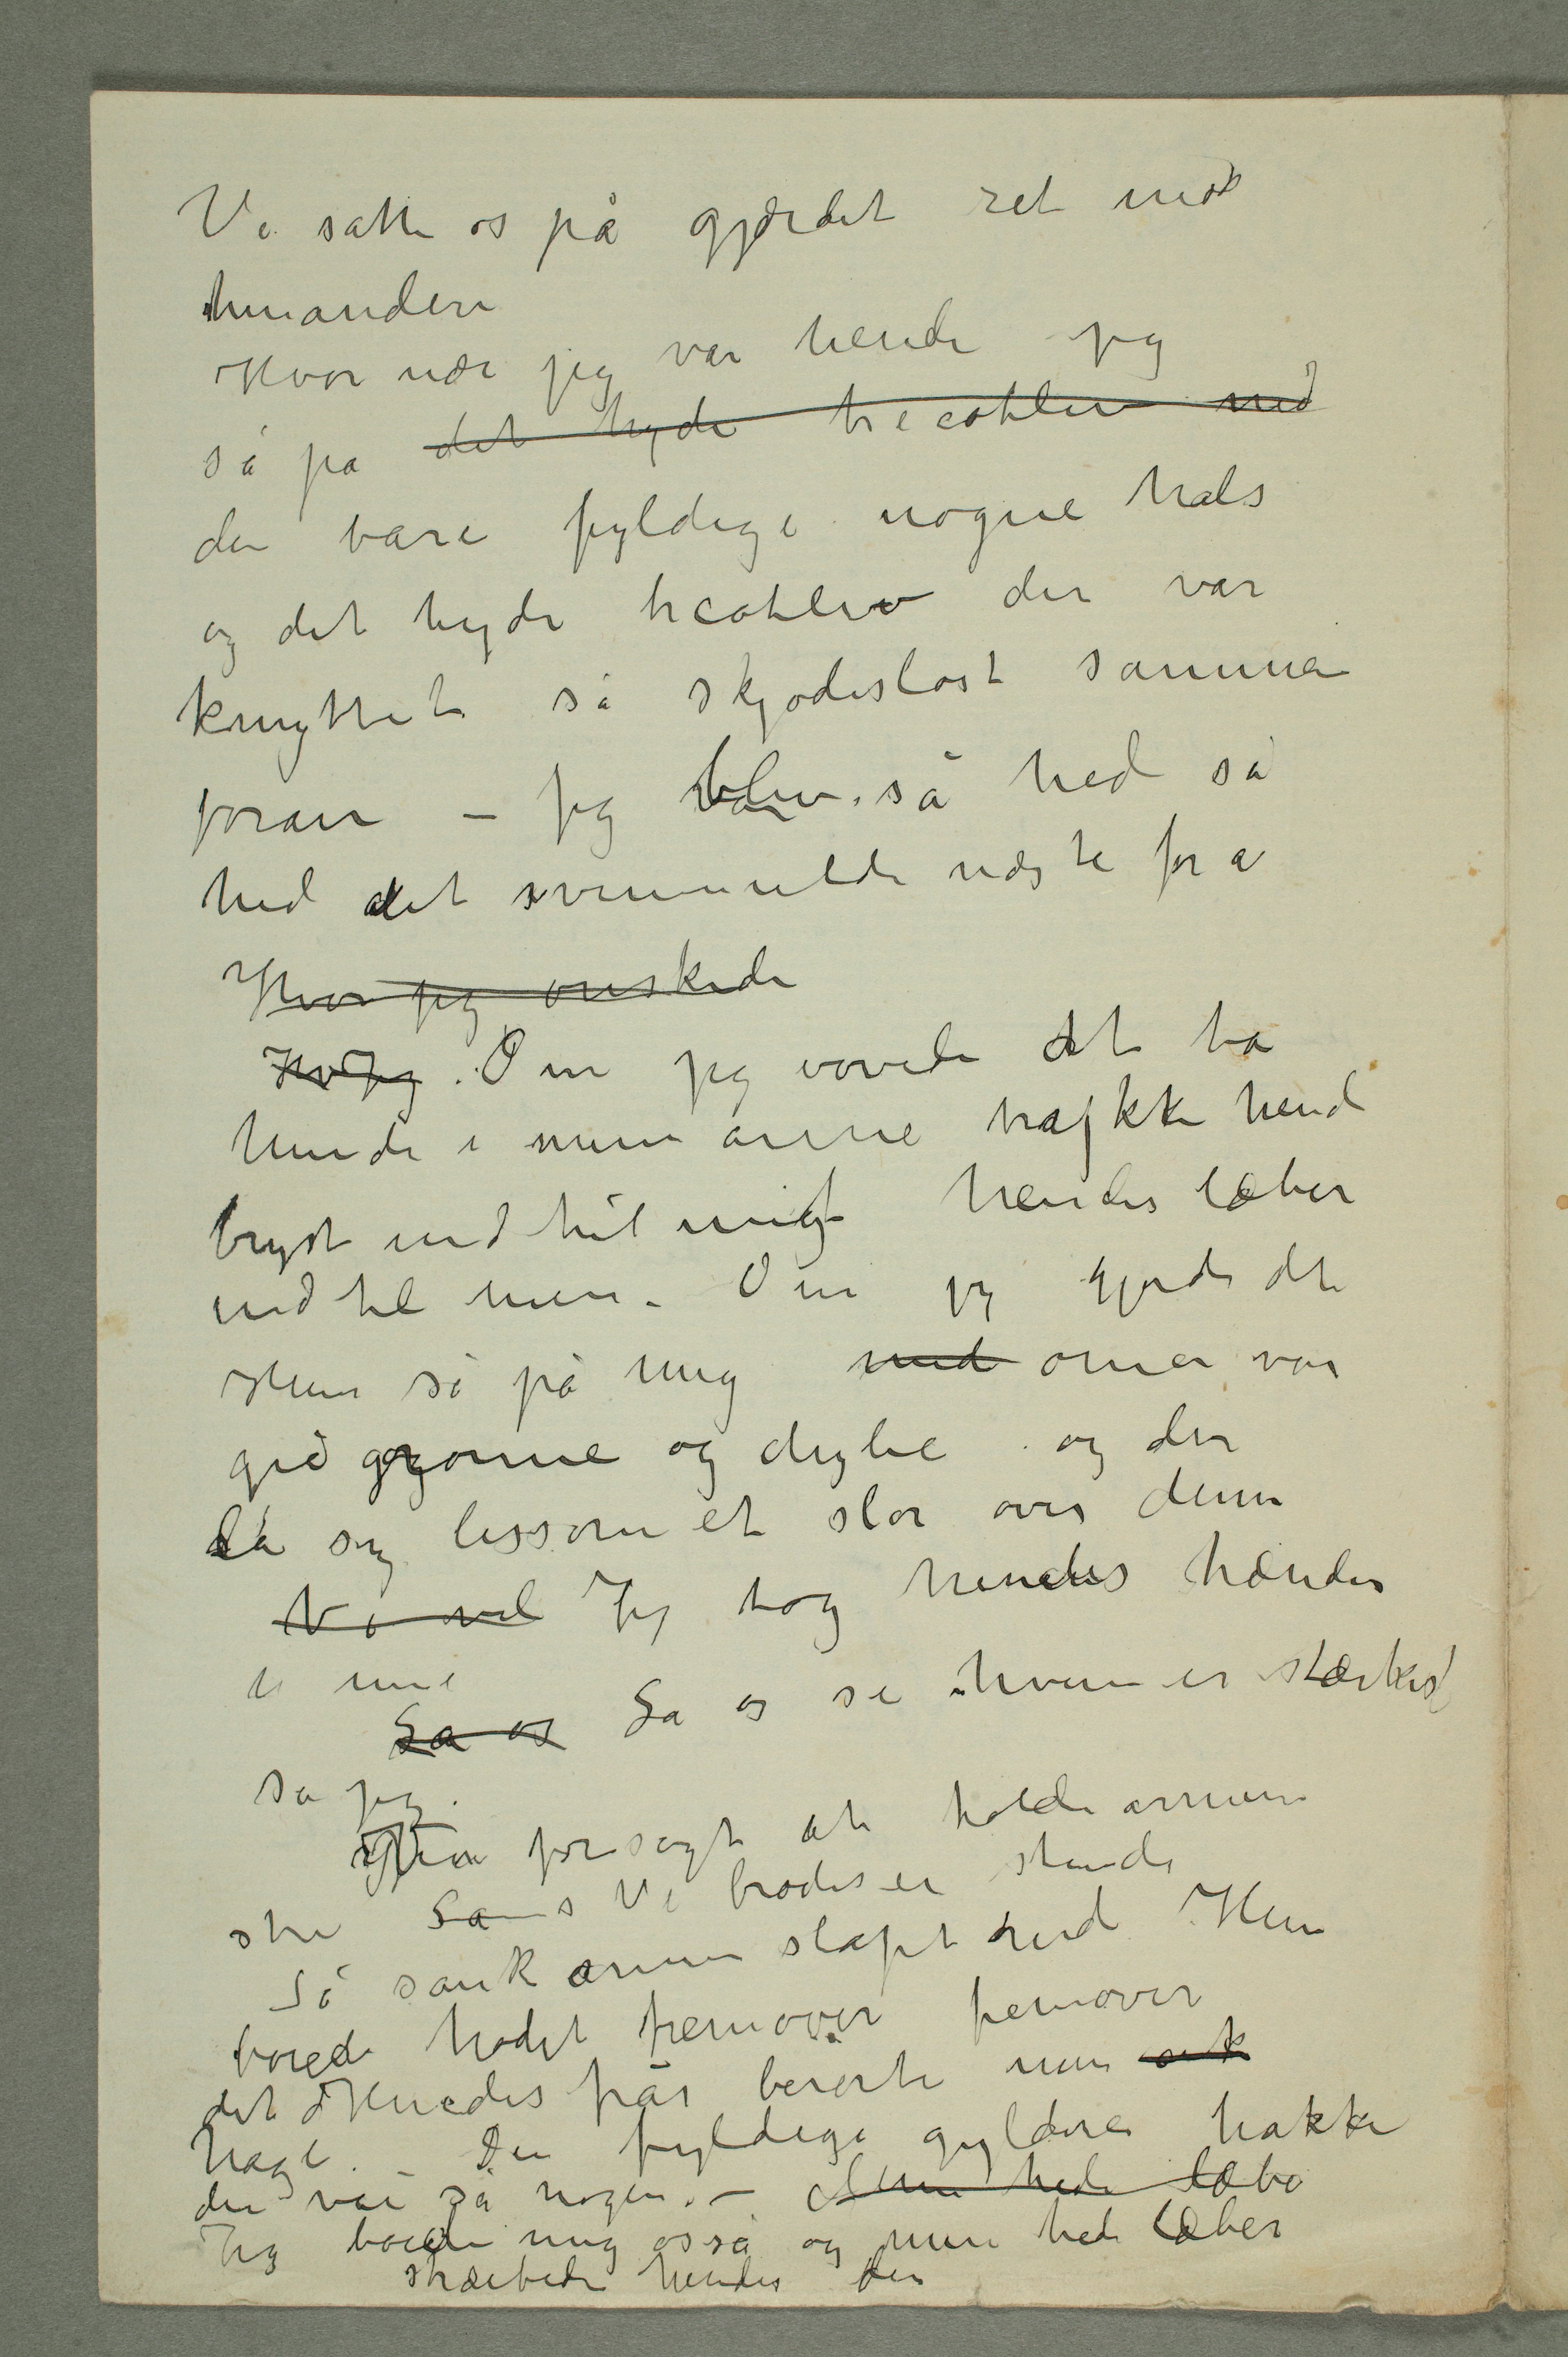 Vi satte os på gjærdet ret mot
hinanden
Hvor nær jeg var hende jeg
så på det tynde tricotliv ned
den bare fyldige nogne hals
og det tynde tricotliv der var
knyttet så skjødesløst sammen
foran – Jeg blev så hed så
hed det svimmelde næste for a
Hvor jeg ønskede
Hv Jeg. Om jeg vovede at ta
hende i mine arme trække hend
bryst ind til mig hendes læber
ind til mine. Om jeg gjorde det
Hun så på mig med ømen var
grå grønne og dybe og der
lå sig lissom et slør over dem
Vi vil Jeg tog hendes hænder
i mine
La os La os se hvem er stærkest
sa jeg.
Hun forsøgt at holde armene
stive La s Vi brødes en stund
Så sank armen slapt ned Hun
bøied hodet fremover fremover
det Hendes hår berørte min
hage. – Den fyldige gyldne nakke
den var så nogen. – Mine hede læbe
Jeg bøiede mig også og mine hede læber
stræbede hendes den